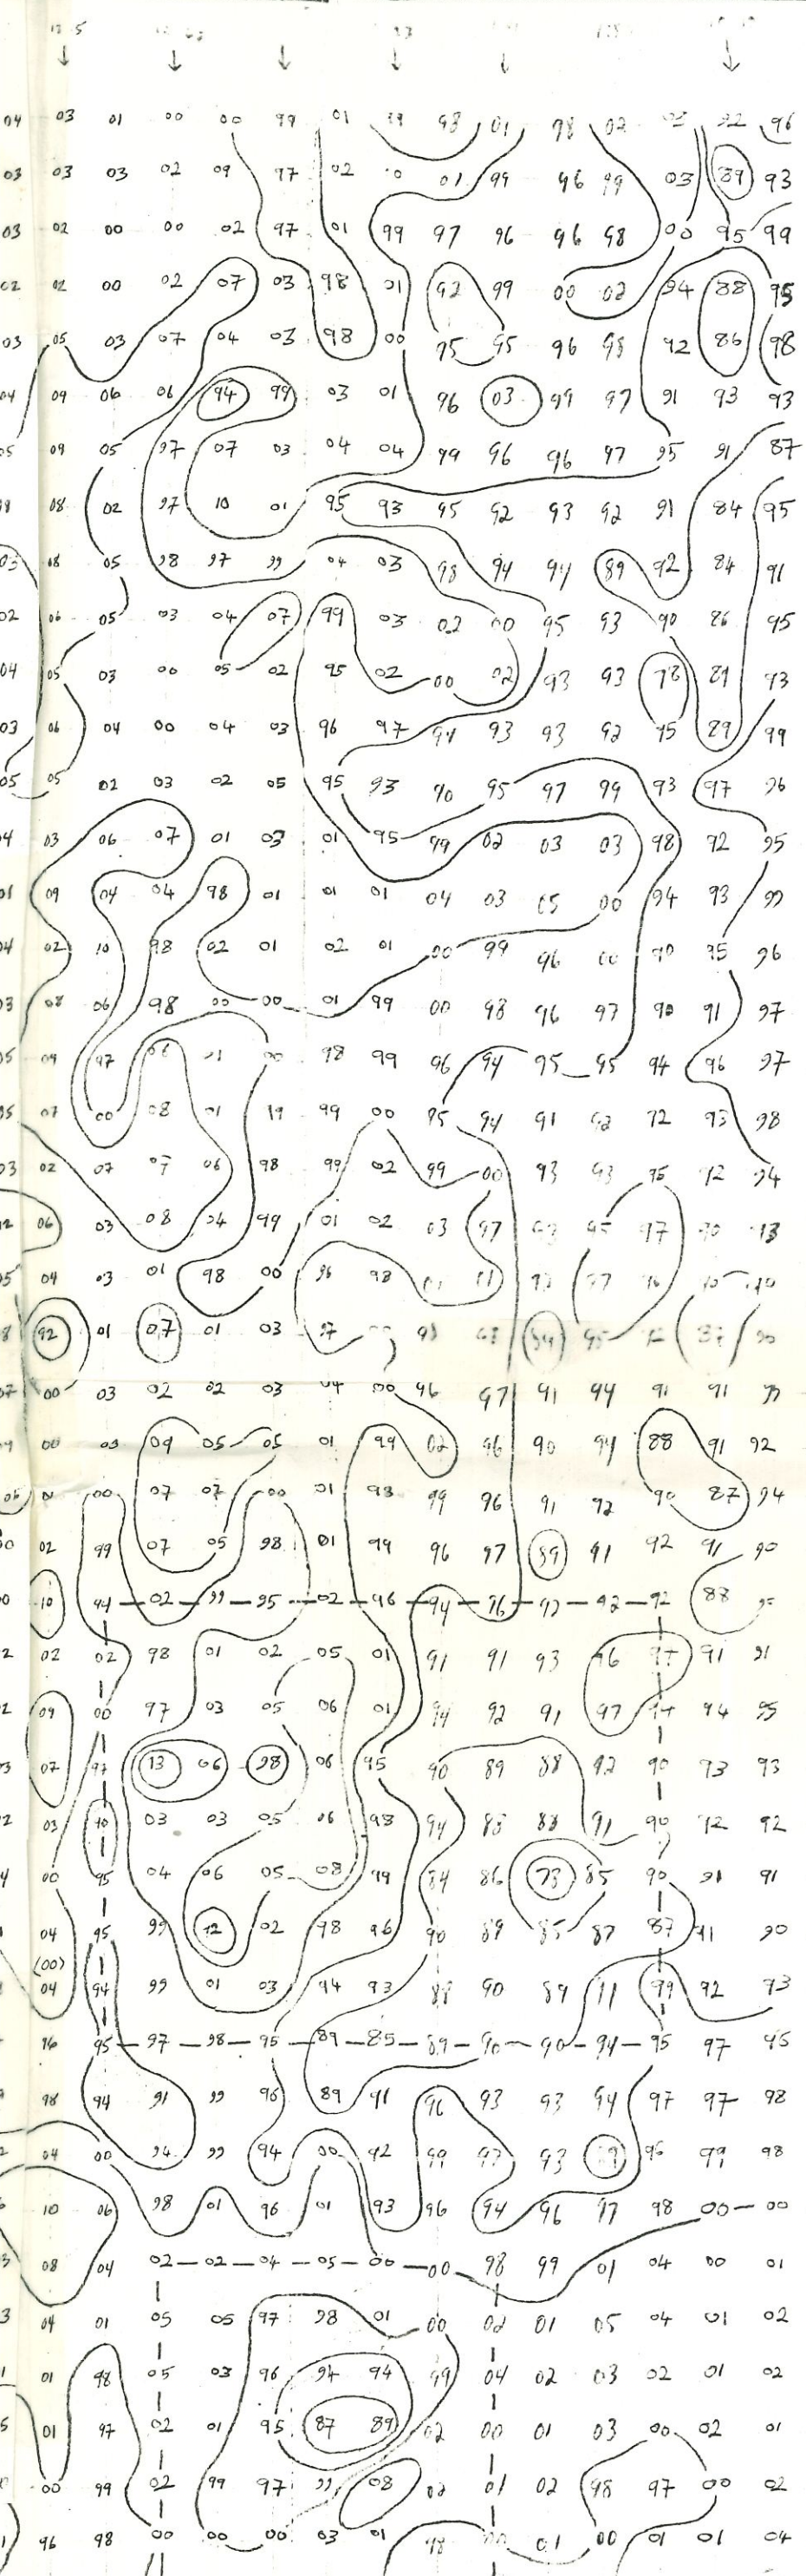 04 03 01 00 00 99 01 99 98 01 98 02 92 96
03 03 03 02 09 97 02 01 99 96 99 03 89 93
03 02 00 00 02 97 01 99 97 96 96 98 00 95 99
02 02 00 02 07 03 98 01 92 99 00 02 94 88 95
03 05 03 07 04 03 98 00 95 95 96 98 92 86 98
04 09 06 06 94 99 03 01 96 03 99 97 91 93 93
05 09 05 97 07 03 04 04 99 96 96 97 95 91 87
08 02 97 10 01 95 93 95 92 93 92 91 84 95
03 08 05 98 97 99 04 03 98 94 94 89 92 84 91
02 06 05 03 04 07 99 03 02 00 95 93 90 86 95
04 05 03 00 05 02 95 02 00 02 93 93 78 89 93
03 06 04 00 04 03 96 97 94 93 93 92 95 89 99
05 05 02 03 02 05 95 93 90 95 97 99 93 97 96
04 03 06 07 01 03 01 95 99 02 03 03 98 92 95
01 09 04 04 98 01 01 01 04 03 05 00 94 93 99
04 02 10 98 02 01 02 01 00 99 96 00 90 95 96
03 08 06 98 00 00 01 99 00 98 96 97 90 91 97
05 09 97 06 01 00 98 99 96 94 95 95 94 96 97
05 07 00 08 01 99 99 00 95 94 91 92 92 93 98
03 02 07 07 06 98 99 02 99 00 93 93 95 92 94
06 03 08 04 99 01 02 03 97 95 97 90 93
05 04 03 01 98 00 96 98 01 97
92 01 07 01 03 97 98 94 95 87
07 00 03 02 02 03 04 00 96 97 91 94 91 91 99
00 03 09 05 05 01 99 02 96 90 94 88 91 92
00 07 07 00 01 98 99 96 91 92 90 87 94
02 99 07 05 98 01 99 96 97 89 91 92 91 90
10 94 02 99 95 02 96 94 96 92 92 92 88
02 02 98 01 02 05 01 91 91 93 96 97 91 91
09 00 97 03 05 06 01 94 92 91 97 94 94 95
07 97 13 06 98 06 95 90 89 88 92 90 93 93
03 90 03 03 05 06 98 94 88 88 91 90 92 92
00 95 04 06 05 08 99 84 86 73 85 90 91 91
04 95 99 12 02 98 96 90 89 85 87 87 91 90
(00)
04 94 99 01 03 94 93 88 90 89 91 99 92 93
96 95 97 98 95 89 85 89 90 90 94 95 97 95
98 94 91 99 96 89 91 96 93 93 94 97 97 98
04 00 94 99 94 00 92 99 97 93 89 96 99 98
10 06 98 01 96 01 93 96 94 96 97 98 00 00
08 04 02 02 04 05 00 00 98 99 01 04 00 01
04 01 05 05 97 98 01 00 02 01 05 04 01 02
01 98 05 03 96 94 94 99 04 02 03 02 01 02
01 97 02 01 95 87 89 02 00 01 03 00 02 01
00 99 02 99 97 99 08 02 01 02 98 97 00 02
96 98 00 00 00 03 01 98 00 01 00 01 01 04